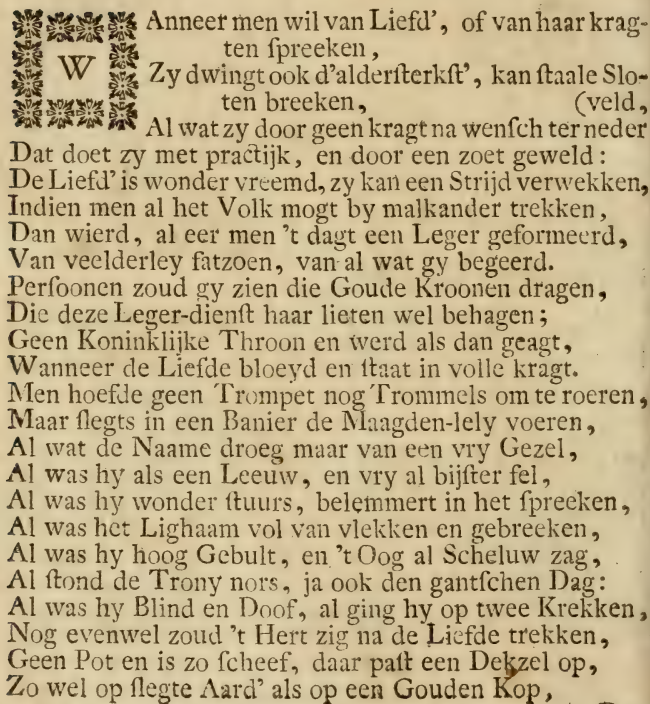 WAnneer men wil van Liefd', of van haar krag-
ten ſpreeken,
Zy dwingt ook d'alderſterkſt', kan ſtaale Slo-
ten breeken, (veld,
Al wat zy door geen kragt na wenſch ter neder
Dat doet zy met practijk, en door een zoet geweld:
De Liefd' is wonder vreemd, zy kan een Strijd verwekken,
Indien men al het Volk mogt by malkander trekken,
Dan wierd, al eer men 't dagt een Leger geformeerd,
Van veelderley fatzoen, van al wat gy begeerd.
Perſoonen zoud gy zien die Goude Kroonen dragen,
Die deze Leger-dienſt haar lieten wel behagen;
Geen Koninklijke Throon en werd als dan geagt,
Wanneer de Liefde bloeyd en ſtaat in volle kragt.
Men hoefde geen Trompet nog Trommels om te roeren,
Maar ſlegts in een Banier de Maagden-lely voeren,
Al wat de Naame droeg maar van een vry Gezel,
Al was hy als een Leeuw, en vry al bijſter fel,
Al was hy wonder ſtuurs, belemmert in het ſpreeken,
Al was het Lighaam vol van vlekken en gebreeken,
Al was hy hoog Gebult, en 't Oog al Scheluw zag,
Al ſtond de Trony nors, ja ook den gantſchen Dag:
Al was hy Blind en Doof, al ging hy op twee Krekken,
Nog evenwel zoud 't Hert zig na de Liefde trekken,
Geen Pot en is zo ſcheef, daar paſt een Dekzel op,
Zo wel op ſlegte Aard' als op een Gouden Kop,